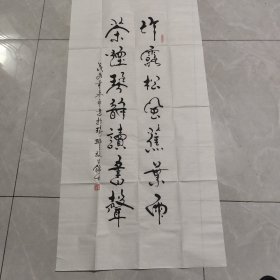 竹露松风蕉葉雨
茶煙琴韻讀書聲